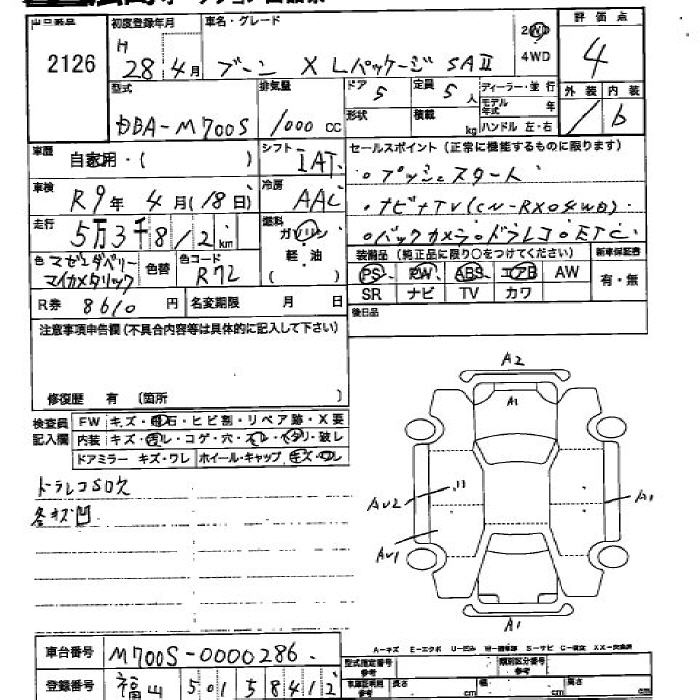 出品番号 2126
初度登録年月 H 28年4月
車名・グレード ブーン X Lパッケージ SAⅡ
2WD
4WD
評価点 4
外装 内装 b
型式 DBA-M700S
排気量 1000 CC
ドア 5
定員 5人
形状
積載 kg
ディーラー・並行
モデル年式 年
ハンドル 左・右
車歴 自家用・( )
シフト IAT
セールスポイント(正常に機能するものに限ります)
・プッシュスタート
・ナビ+TV(CN-RX04WD)
・バックカメラ・ドラレコ・ETC
車検 R9年4月(18日)
冷房 AAC
走行 5万3千812km
燃料 ガソリン
軽油
( )
色 マゼンタベリーマイカメタリック
色替
色コード R72
装備品(純正品に限り○をつけてください)
PS PW ABS エアB AW
SR ナビ TV カワ
新車保証書
有・無
R券 8610円
名変期限 月 日
後日品
注意事項申告欄(不具合内容等は具体的に記入して下さい)
修復歴 有 (箇所 )
検査員記入欄
FW キズ・飛石・ヒビ割・リペア跡・X要
内装 キズ・汚レ・コゲ・穴・スレ・ヘタリ・破レ
ドアミラー キズ・ワレ ホイール・キャップ キズ・ワレ
ドラレコSD欠
各キズ凹
A2
A1
AU2
AU1
A1
A1
A-キズ E-エクボ U-凹み
車台番号 M700S-0000286
登録番号 福山 501 5 8412
型式指定番号 参考
類別区分番号 参考
車庫証明用 参考
長さ cm 幅 cm 高さ cm